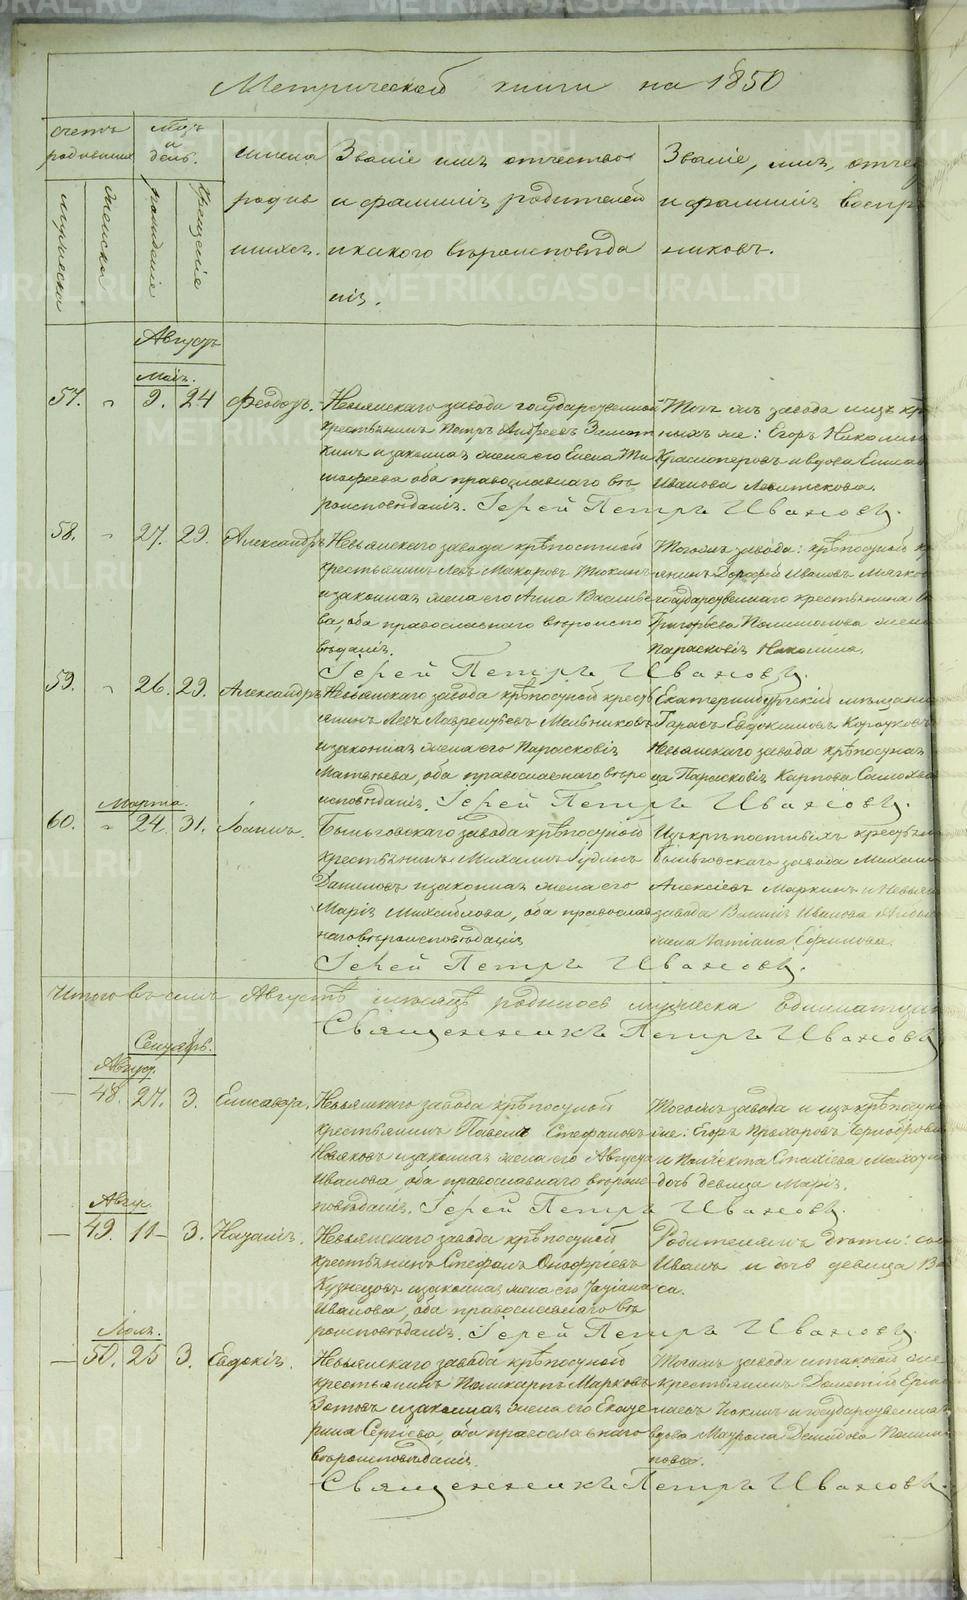 Метрической книги на 1850
счетъ родившихся
мужеска
женска
мѣсяцъ и день.
рожденіе
крещеніе
имена родив шихся.
Званіе имя отчество
и фамилія родителей
и какого вѣроисповѣда
нія.
Званіе, имя, отчес
и фамилія воспр
никовъ.
Августъ
Маія.
57. " 9. 24 Феодоръ.
Невьянскаго завода государственной
крестьянинъ Петръ Андреевъ
кинъ и законная жена его Елена Ти
мофеева оба православнаго вѣ
роисповѣданія. Іерей Петръ Ивановъ.
Того жъ завода изъ кр
ныхъ же: Егоръ
Красноперовъ и вдова
Иванова
58. " 27. 29. Александръ
Невьянскаго завода крѣпостной
крестьянинъ Левъ Макаровъ
и законная жена его Анна Василье
ва, оба православнаго вѣроиспо
вѣданія.
Іерей Петръ Ивановъ.
Тогожъ завода: крѣпостной кр
янинъ Дорофей Ивановъ
государственнаго крестьянина
Григорьева жена
Парасковія
59. " 26. 29. Александръ
Невьянскаго завода крѣпостной крест
янинъ Левъ Лаврентьевъ Мельниковъ
и законная жена его Парасковія
Матвеева, оба православнаго вѣро
исповѣданія. Іерей Петръ Ивановъ.
Екатеринбургскій мѣщанин
Тарасъ Евдокимовъ
Невьянскаго завода крѣпостная
ца Парасковія Карпова
Марта
60. " 24. 31. Іоаннъ.
Быньговскаго завода крѣпостной
крестьянинъ Михаилъ
Даниловъ и законная жена его
Марія Михайлова, оба православ
наго вѣроисповѣданія
Іерей Петръ Ивановъ.
Изъ крѣпостныхъ крестьян
Быньговскаго завода Михаил
Алексіевъ Маркинъ и Невьян
завода Иванова
жена Татіана Ефимова.
Итого въ семъ Августѣ мѣсяцѣ родилось мужеска одиннатцат
Священникъ Петръ Ивановъ
Сентябрь.
Август.
— 48. 27. 3. Елисавета.
Невьянскаго завода крѣпостной
крестьянинъ Павелъ Стефановъ
и законная жена его Августа
Иванова оба православнаго вѣроис
повѣданія. Іерей Петръ Ивановъ.
Тогожъ завода и изъ крѣпостн
же: Егоръ Прохоровъ Чернобровинъ
и
дочь девица Марія.
Авгус.
— 49. 11 — 3. Наталія.
Невьянскаго завода крѣпостной
крестьянинъ Стефанъ Онофріевъ
Кузнецовъ и законная жена его Татіана
Иванова, оба православнаго вѣ
роисповѣданія. Іерей Петръ Ивановъ.
Родителямъ дѣти: сын
Иванъ и дочь девица Ва
са.
Іюля.
— 50. 25 3. Евдокія.
Невьянскаго завода крѣпостной
крестьянинъ Поликарпъ Марковъ
Зотовъ и законная жена его Екате
рина Сергіева, оба православнаго
вѣроисповѣданія.
Тогожъ завода и таковой же
крестьянинъ Дометій
лаевъ и государственна
вдова Демидова
Священникъ Петръ Ивановъ.
METRIKI.GASO-URAL.RU